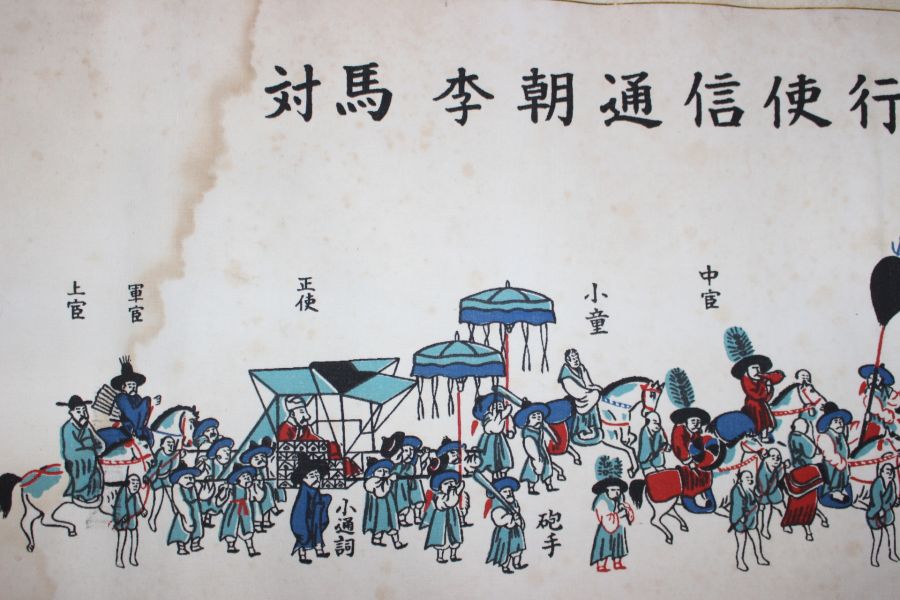 対馬 李朝通信使行
上官
軍官
正使
小童
中官
小通詞
砲手